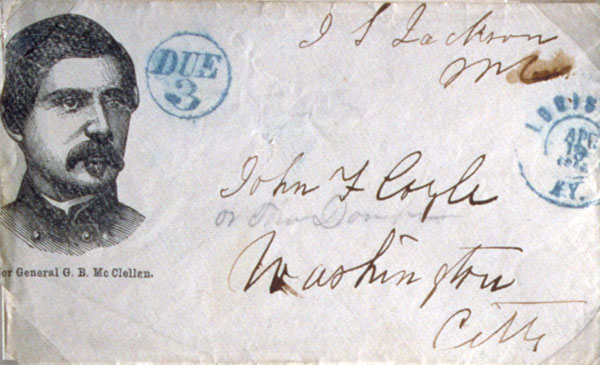 J S Jackson
M C
DUE
3
LOUIS
APR
KY.
John F Coyle
or
Washington
City
or General G. B. Mc Clellen.